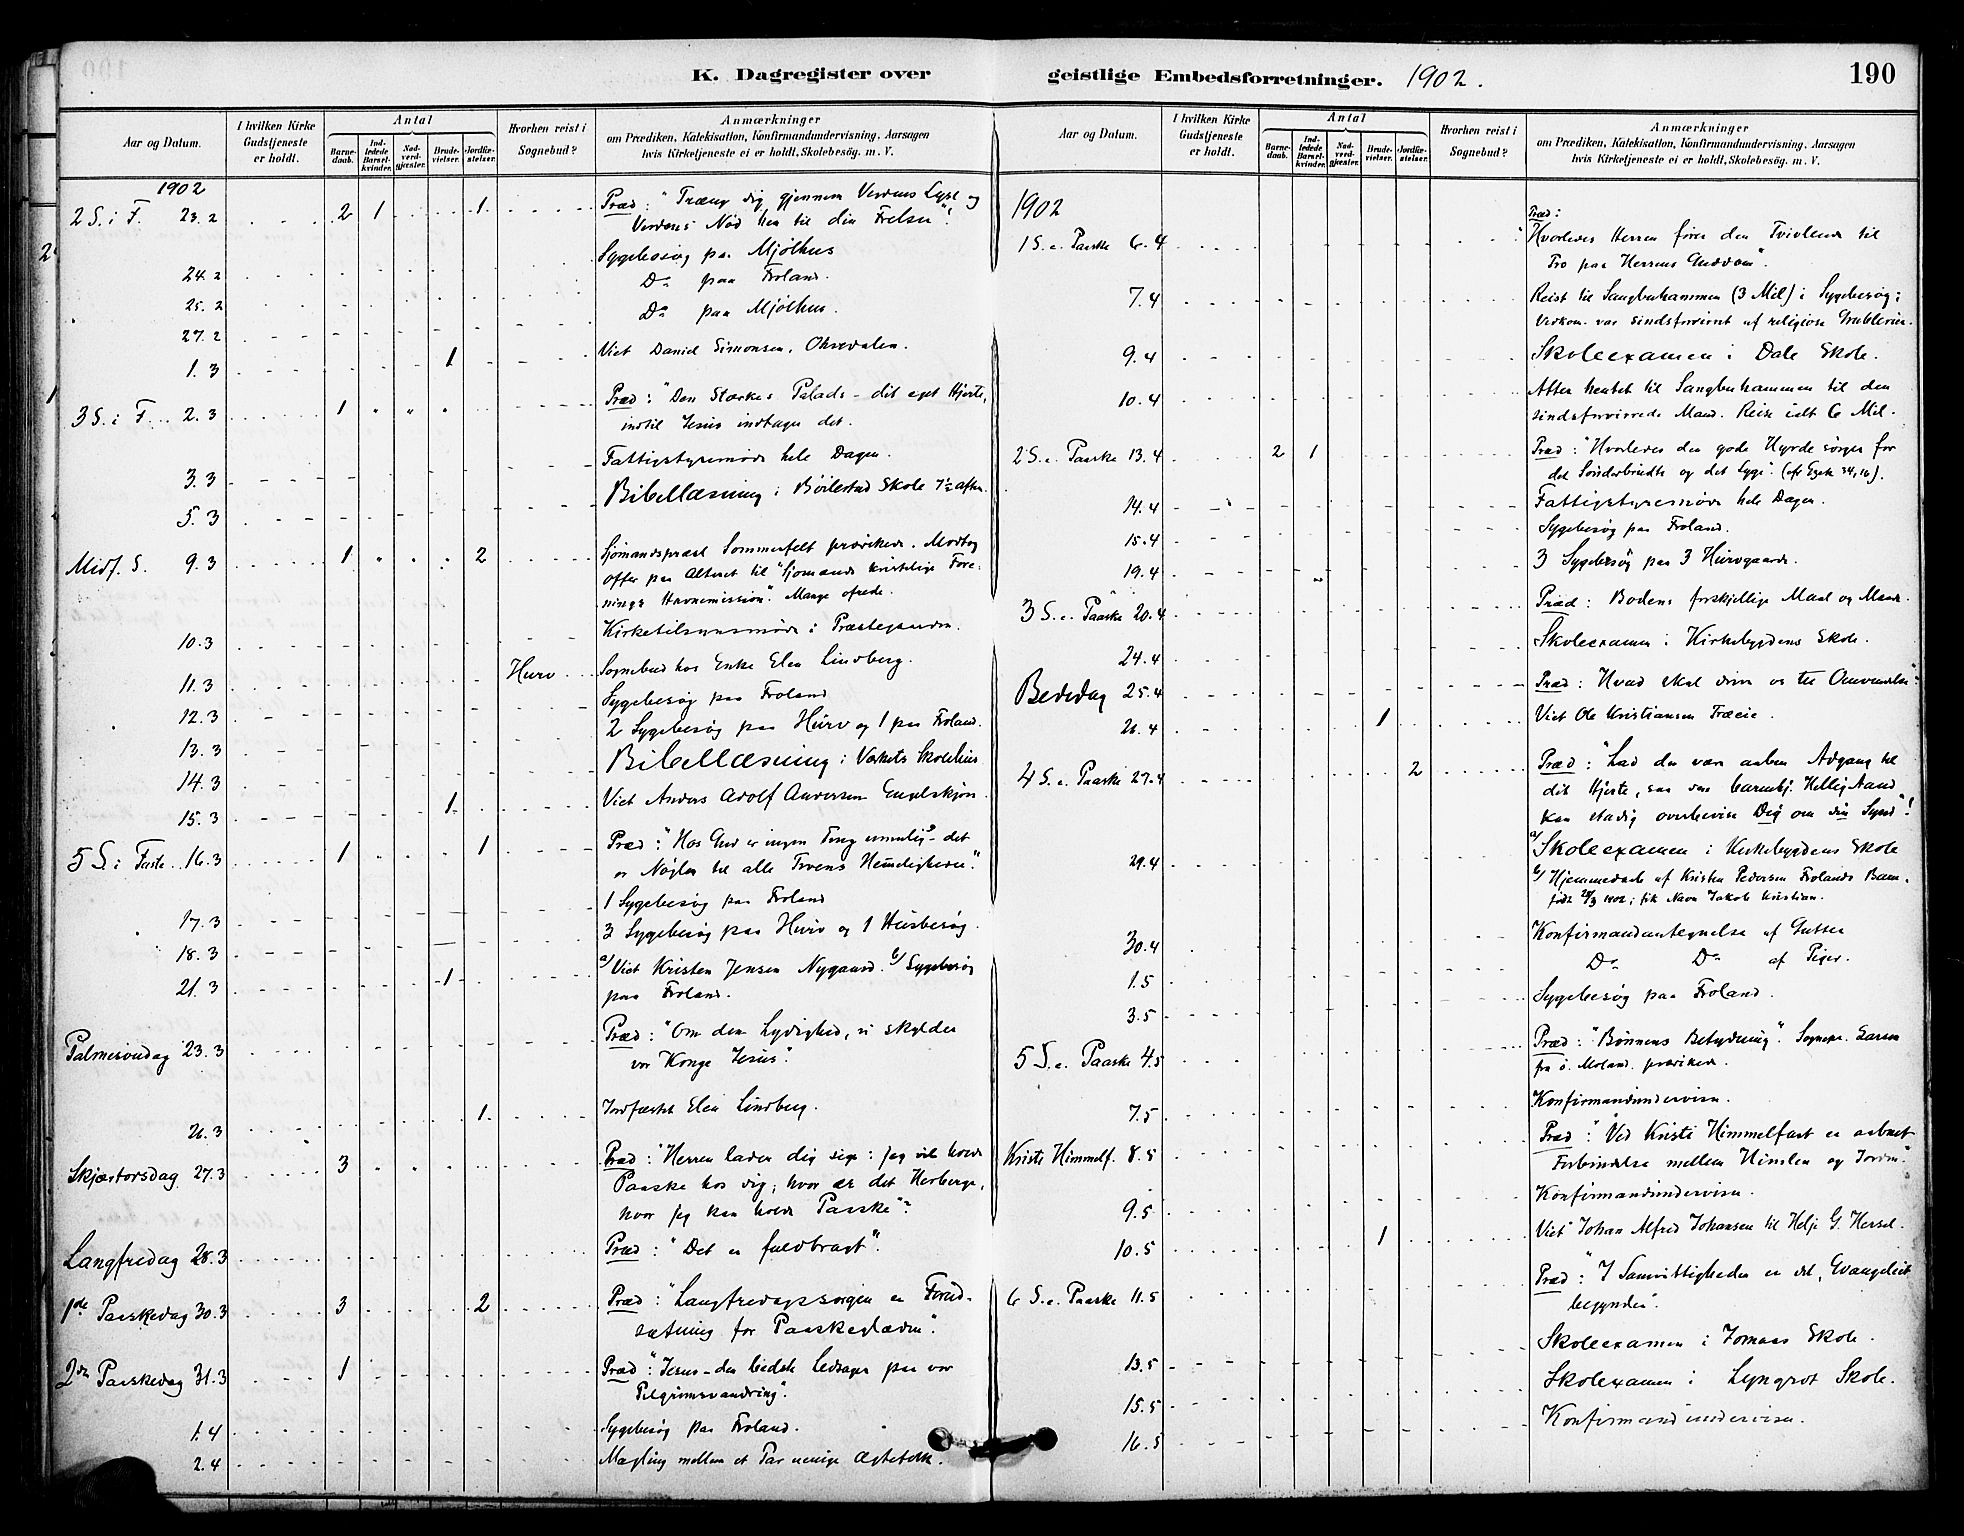 K. Dagregister over
geistlige Embedsforretninger. 1902.
190
Aar og Datum.
I hvilken Kirke Gudstjeneste er holdt.
Antal
Barnedaab.
Indledede Barselkvinder.
Nadverdgjester.
Brudevielser.
Jordfæstelser.
Hvorhen reist i Sognebud?
Anmærkninger
om Prædiken, Katekisation, Konfirmandundervisning, Aarsagen
hvis Kirketjeneste ei er holdt, Skolebesøg. m. V.
1902
2 S. i F. 23.2 2 1 1 Præd: "Træng dig gjennem Verdens Lyst og
Verdens Nød hen til din Frelser"!
Sygebesøg paa Mjølhus
24.2 Do paa Froland.
25.2 Do paa Mjølhus.
27.2
1.3 1 Viet Daniel Simonsen,
3 S. i F. 2.3 1 Præd: "Den Stærkes Palads - dit eget Hjerte,
indtil Jesus indtager det.
Fattigstyremøde hele Dagen.
3.3 Bibellæsning i Bøilestad Skole 7½ aften.
5.3
Midf. S. 9.3 1 2 Sjømandsprest Sommerfelt prædikede. Modtog
offer paa Alteret til "Sjømænds kristelige Fore-
nings Havnemission". Mange ofrede.
10.3 Kirketilsynsmøde i Præstegaarden.
11.3 Hurv Sognebud hos Enke Elen Lindberg.
12.3 Sygebesøg paa Froland
13.3 2 Sygebesøg paa Hurv og 1 paa Froland.
14.3 Bibellæsning i Værkets Skolehus
15.3 1 Viet Anders Adolf Andersen
5 S. i Faste 16.3 1 1 Præd: "Hos Gud er ingen Ting umulig" - det
er Nøglen til alle Troens Hemmeligheder."
1 Sygebesøg paa Froland
17.3 3 Sygebesøg paa Hurv og 1 Husbesøg.
18.3
21.3 1 a/ Viet Kristen Jensen Nygaard. b/ Sygebesøg
paa Froland.
Palmesøndag 23.3 Præd: "Om den Lydighed, vi skylder
vor Konge Jesus".
26.3 1 Jordfæstet Elen Lindberg.
Skjærtorsdag 27.3 3 Præd: "Herren lader dig sige: jeg vil holde
Paaske hos dig; hvor er det Herberge,
hvor jeg kan holde Paaske"?
Langfredag 28.3 Præd: "Det er fuldbragt".
1ste Paaskedag 30.3 3 2 Præd: "Langfredagssorgen er Forud-
sætning for Paaskeglæden".
2den Paaskedag 31.3 1 Præd: "Jesus - den bedste Ledsager paa vor
Pilgrimsvandring".
1.4 Sygebesøg paa Froland.
2.4 Mægling mellem et Par uenige Ægtefolk.
Aar og Datum.
I hvilken Kirke Gudstjeneste er holdt.
Antal
Barnedaab.
Indledede Barselkvinder.
Nadverdgjester.
Brudevielser.
Jordfæstelser.
Hvorhen reist i Sognebud?
Anmærkninger
om Prædiken, Katekisation, Konfirmandundervisning, Aarsagen
hvis Kirketjeneste ei er holdt, Skolebesøg. m. V.
1902
1 S. e. Paaske 6.4 Præd:
"Hvorledes Herren fører den Tvivlende til
Tro paa Herrens Guddom".
7.4 Reist til (3 Mil) i Sygebesøg;
Vedkom. var sindsforvirret af religiøse Grublerier.
9.4 Skoleexamen i Dale Skole.
10.4 Atter hentet til til den
sindsforvirrede Mand. Reise ialt 6 Mil.
2 S. e. Paaske 13.4 2 1 Præd: "Hvorledes den gode Hyrde sørger for
det Sønderbrudte og det Syge". (eft Ezek 34,16).
14.4 Fattigstyremøde hele Dagen.
15.4 Sygebesøg paa Froland.
19.4 3 Sygebesøg paa 3 Hurvgaarde.
3 S. e. Paaske 20.4 Præd: Bodens forskjellige Maal og Maade.
24.4 Skoleexamen i Kirkebygdens Skole.
Bededag 25.4 Præd: "Hvad skal drive os til Omvendelse"?
26.4 1 Viet Ole Kristiansen Træeie.
4 S. e. Paaske 27.4 2 Præd: "Lad der være aaben Adgang til
dit Hjerte, saa den barmhj. Hellig Aand
kan stadig overbevise Dig om din Synd"!
29.4 a/ Skoleexamen i Kirkebygdens Skole
b/ Hjemmedaab af Kristen Pedersen Frolands Barn,
født 28/3 1902; fik Navn Jakob Kristian.
30.4 Konfirmandantegnelse af Gutter
1.5 Do Do af Piger.
3.5 Sygebesøg paa Froland.
5 S. e. Paaske 4.5 Præd: "Bønnens Betydning". Sognepr. Larsen
fra ø. Moland prædikede.
7.5 Konfirmandundervisn.
Kristi Himmelf. 8.5 Præd: "Ved Kristi Himmelfart er aabnet
Forbindelse mellem Himlen og Jorden".
9.5 Konfirmandundervisn.
10.5 1 Viet Johan Alfred Johansen til Helje G. Hessel.
6 S. e. Paaske 11.5 Præd: "I Samvittigheden er det, Evangeliet
begynder".
13.5 Skoleexamen i Jomaas Skole.
15.5 Skoleexamen i Lyngrot Skole.
16.5 Konfirmandundervisn.